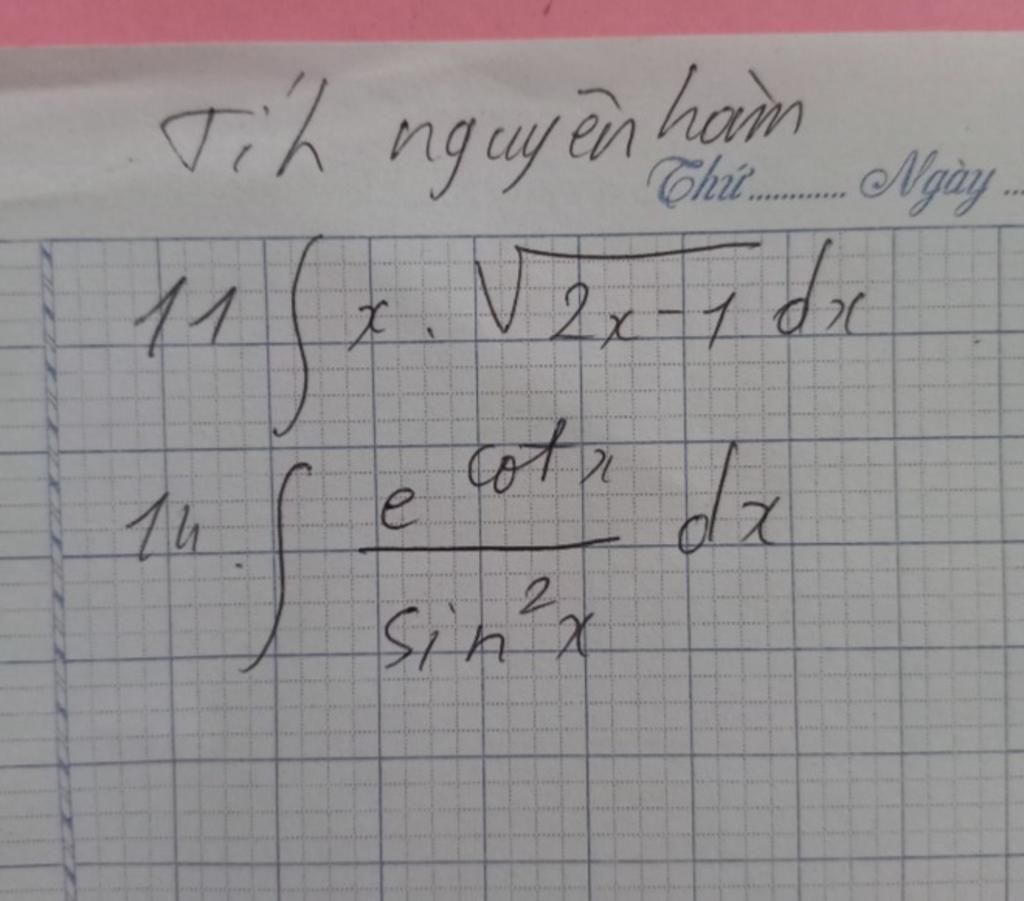 Tíh nguyên hàm
Thứ ............ Ngày ...
11 ∫ x . √(2x-1) dx
14 . ∫ e^(cot x) / sin²x dx